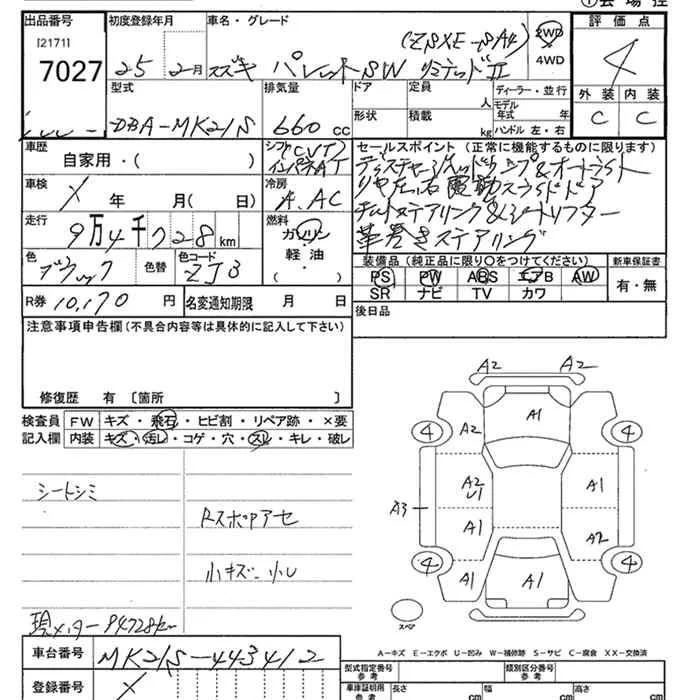 出品番号
[2171]
7027
初度登録年月
25 2月
車名・グレード
スズキ パレットSW リミテッドⅡ
(ZSXE-SA4)
2WD
4WD
評価点
4
外装 内装
C C
型式
DBA-MK21S
排気量
660 cc
ドア
形状
定員
人
積載
kg
ディーラー・並行
モデル
年式 年
ハンドル 左・右
車歴
自家用・( )
シフト (CVT)
インパネAT
車検
X 年 月( 日)
冷房
A.AC
走行
9万4千728km
燃料
ガソリン
軽油
( )
色
ブラック
色替
色コード
ZJ3
R券 10,170 円
名変通知期限 月 日
セールスポイント(正常に機能するものに限ります)
ディスチャージヘッドランプ&オートライト
リヤ左右電動スライドドア
チルトステアリング&シートリフター
革巻きステアリング
装備品(純正品に限り○をつけてください)
PS PW ABS エアB AW
SR ナビ TV カワ
新車保証書
有・無
後日品
注意事項申告欄(不具合内容等は具体的に記入して下さい)
修復歴 有 [箇所 ]
検査員
記入欄
FW キズ・飛石・ヒビ割・リペア跡・×要
内装 キズ・汚レ・コゲ・穴・スレ・キレ・破レ
シートシミ
Rスポ小アセ
小キズ、小U
現メーター94728km
A2 A2
A1
4 A2 4
A2
U1
A1
A3
A1
A2
4 A1 A1 4
スペア
A-キズ E-エクボ U-凹み W-補修跡 S-サビ C-腐食 XX-交換済
車台番号
MK21S-443412
登録番号
X
型式指定番号
参考
類別区分番号
参考
車庫証明用
参考
長さ cm
幅 cm
高さ cm